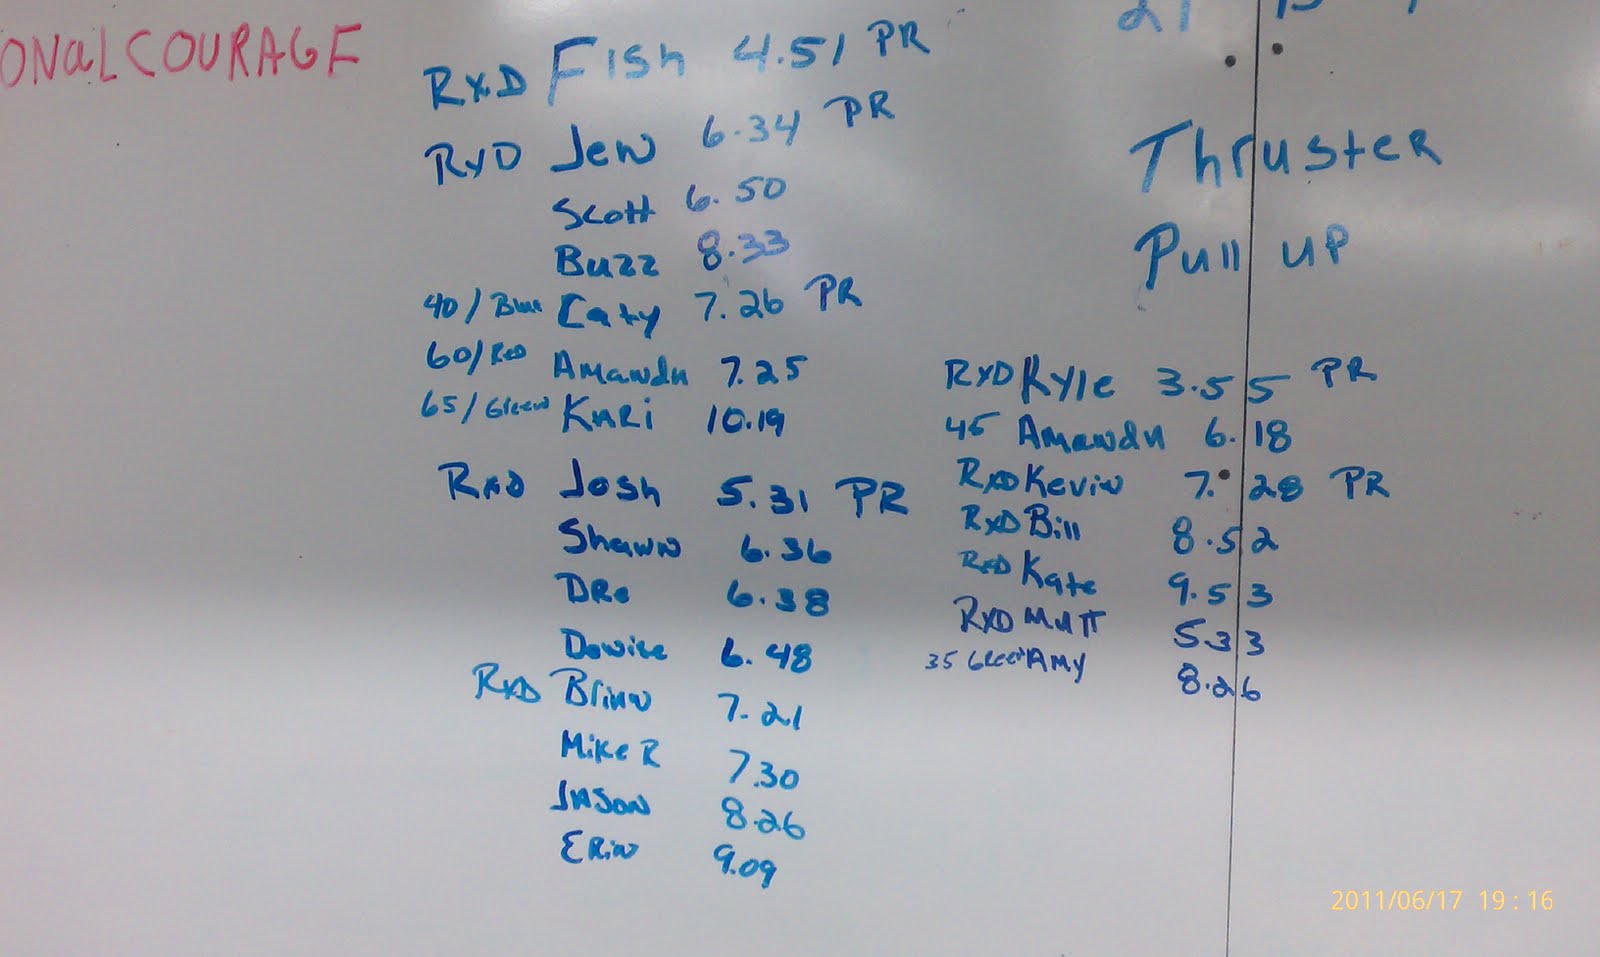 ONalCOURAGE
RXD Fish 4.51 PR
RXD Jen 6.34 PR
Scott 6.50
Buzz 8.33
40/Blue Caty 7.26 PR
60/Red Amanda 7.25
65/Green KARi 10.19
RXD Josh 5.31 PR
Shawn 6.36
DRe 6.38
6.48
RXD Brian 7.21
Mike R 7.30
JASon 8.26
ERin 9.09
21 15
ThrusteR
Pull up
RXD Kyle 3.55 PR
45 Amanda 6.18
RXD Kevin 7.28 PR
RXD Bill 8.52
RXD Kate 9.53
RXD MATT 5.33
35 Green AMY 8.26
2011/06/17 19:16